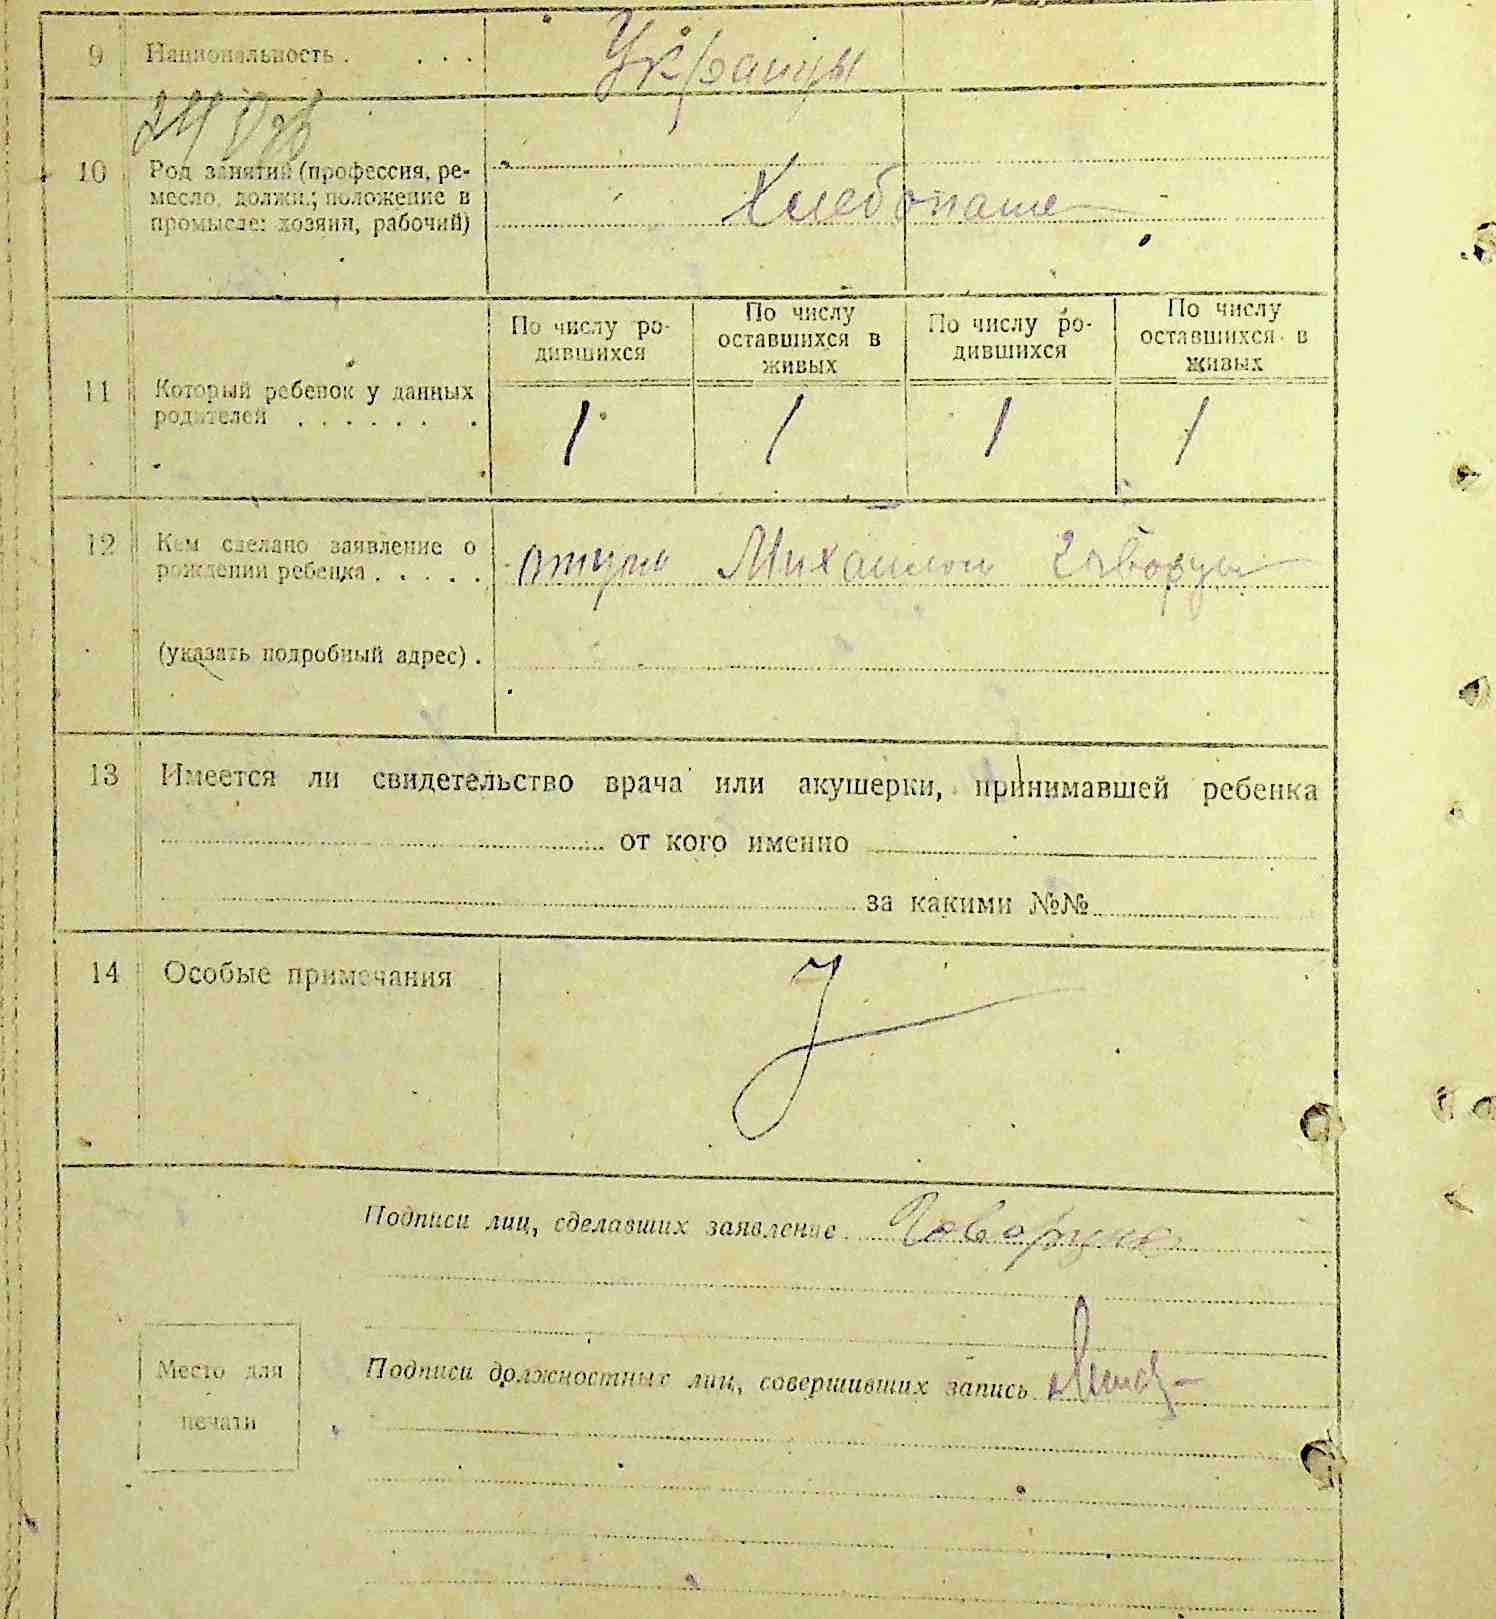 9 Национальность . . . . Украинцы
10 Род занятий (профессия, ре-
месло, должн.; положение в
промысле: хозяин, рабочий)
Хлебопаше
По числу ро-
дившихся
По числу
оставшихся в
живых
По числу ро-
дившихся
По числу
оставшихся в
живых
11 Который ребенок у данных
родителей . . . . . . .
1 1 1 1
12 Кем сделано заявление о
рождении ребенка . . . . .
отцем Михаилом
(указать подробный адрес) .
13 Имеется ли свидетельство врача или акушерки, принимавшей ребенка
от кого именно
за какими №№
14 Особые примечания
Подписи лиц, сделавших заявление
Подписи должностных лиц, совершивших запись
Место для
печати